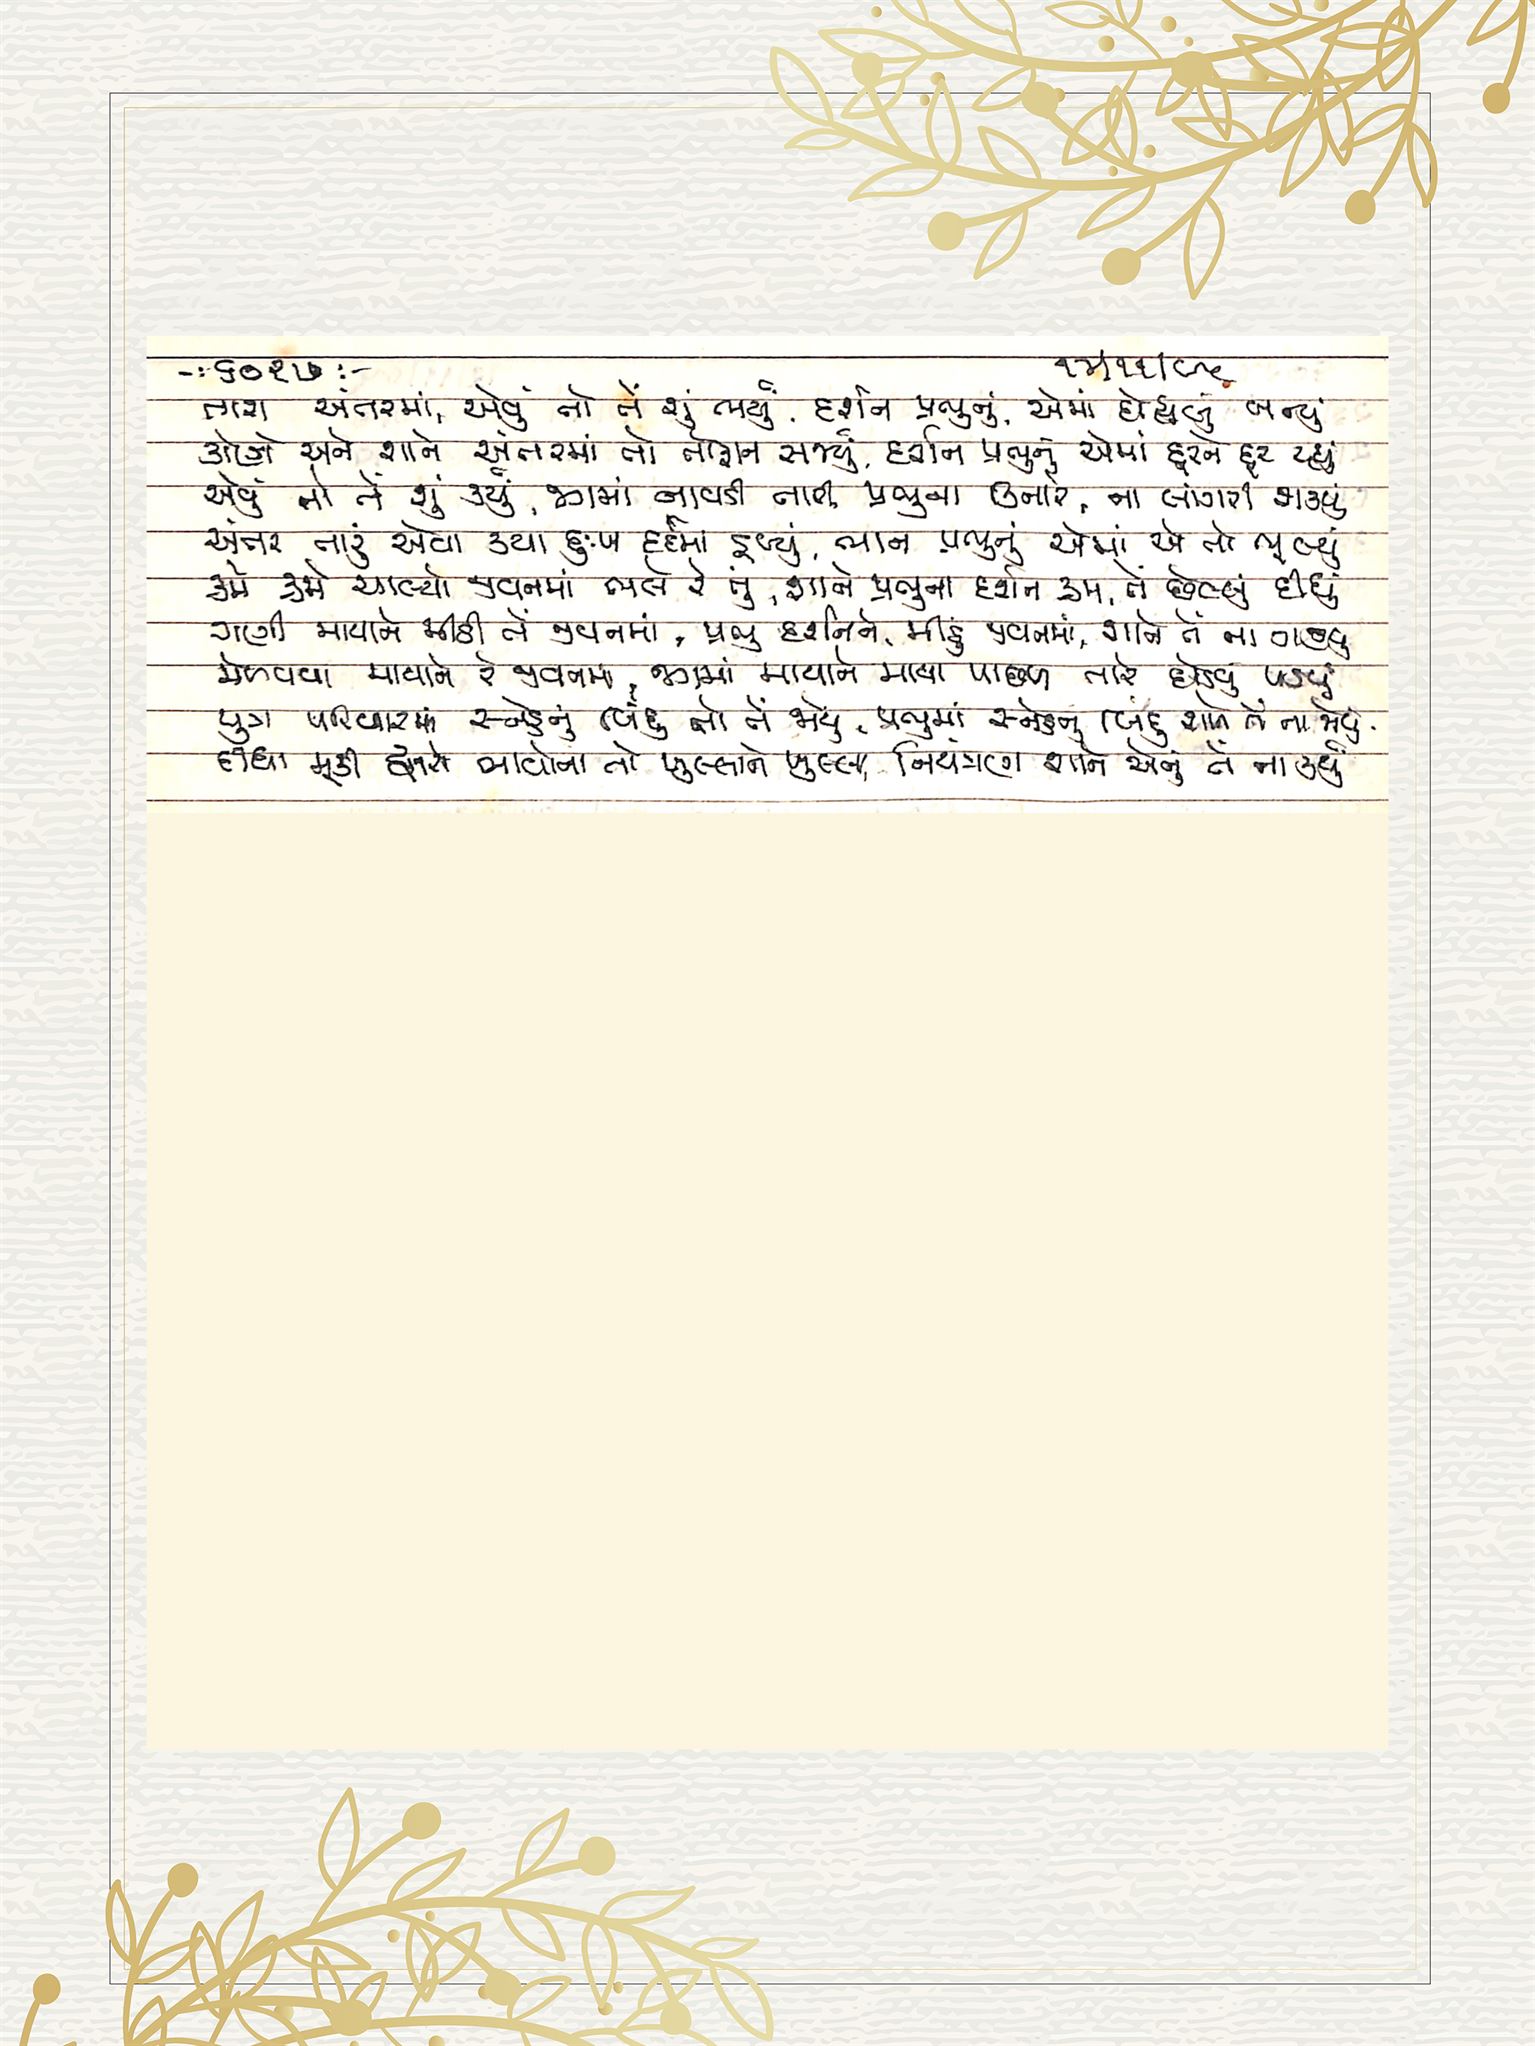 -:૬૦૨૭:-
૧૪/૧૧/૯૫
તારા અંતરમાં, એવું તો તેં શું ભર્યું, દર્શન પ્રભુનું, એમાં દોહ્યલું બન્યું
કોણે અને શાને અંતરમાં તો તોફાન સર્જ્યું, દર્શન પ્રભુનું એમાં દૂરને દૂર રહ્યું
એવું તો તેં શું કર્યું, જેમાં નાવડી તારી, પ્રભુના કિનારે, ના લાંગરી શક્યું
અંતર તારું એવા કયા દુઃખ દર્દમાં ડૂબ્યું, ભાન પ્રભુનું એમાં એ તો ભૂલ્યું
ક્રમે ક્રમે ચાલ્યો જીવનમાં ભલે રે તું, શાને પ્રભુના દર્શન ક્રમ, તેં છેલ્લું દીધું
ગણી માયાને મીઠી તેં જીવનમાં, પ્રભુ દર્શનને, મીઠું જીવનમાં, શાને તેં ના ગણ્યું
મેળવવા માયાને રે જીવનમાં, જેમાં માયાને માયા પાછળ તારે દોડવું પડયું
પુત્ર પરિવારમાં સ્નેહનું બિંદુ તો તેં જોયું, પ્રભુમાં સ્નેહનું બિંદુ શાને તેં ના જોયું
દીધા મૂકી ભાવોના તો ખુલ્લાને ખુલ્લા, નિયંત્રણ શાને એનું તેં ના કર્યું